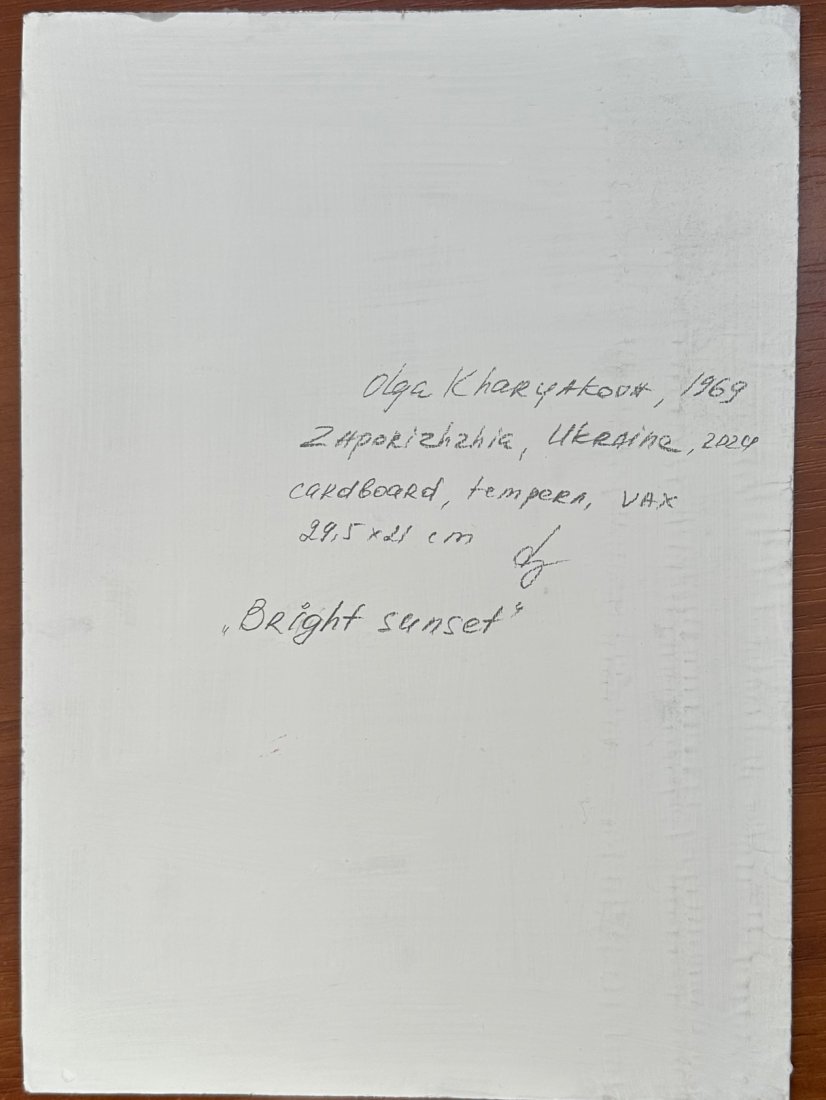 Olga Kharyakova, 1969
Zaporizhzhia, Ukraine, 2024
cardboard, tempera, vax
29,5 x 21 cm
„Bright sunset“